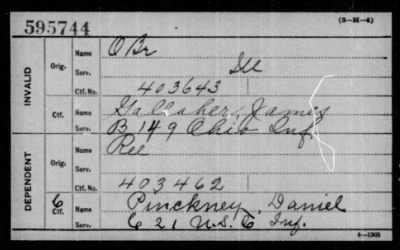 595744
(3-H-4)
INVALID
Orig.
Name O Br
Serv. Ill
Ctf. No. 403643
Ctf.
Name Gallaher, James
Serv. B 149 Ohio Inf.
DEPENDENT
Orig.
Name Ree
Serv.
Ctf. No. 403462
6
Ctf.
Name Pinckney, Daniel
Serv. C 21 U.S.C Inf.
6-1303